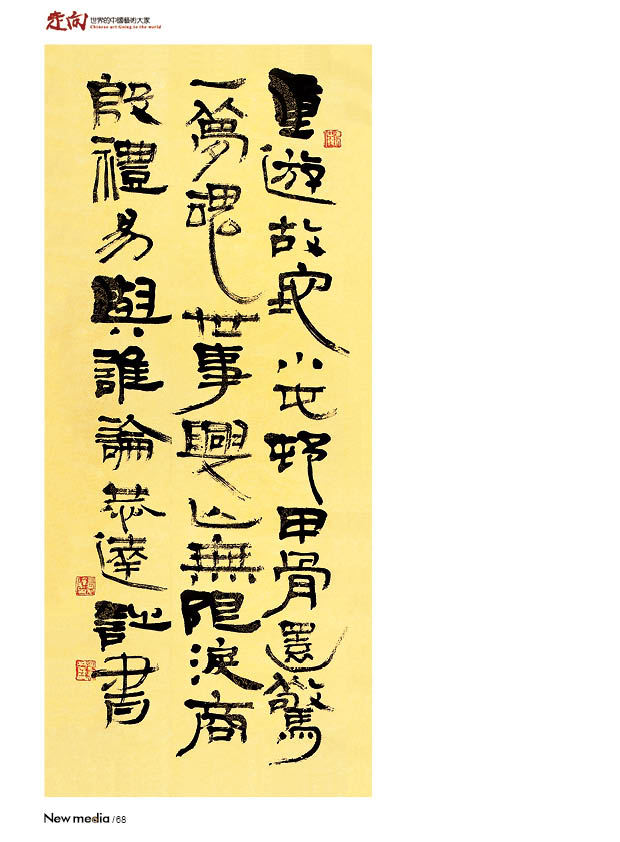 走向世界的中國藝術大家
Chinese art Going to the world
重遊故小屯邨甲骨還驚
一夢魂世事興亡無限淚商
殷禮易與誰論恭達書
New media /68